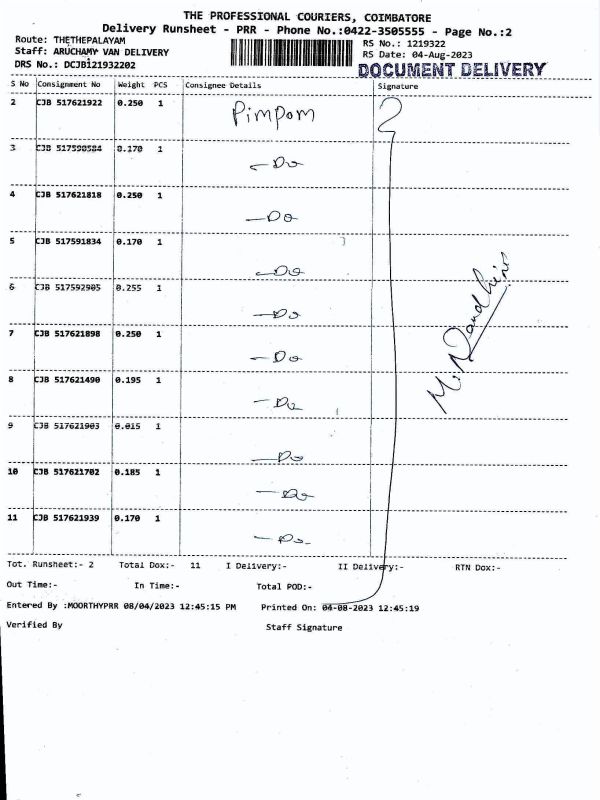 THE PROFESSIONAL COURIERS, COIMBATORE
Delivery Runsheet - PRR - Phone No.:0422-3505555 - Page No.:2
Route: THETHEPALAYAM
Staff: ARUCHAMY VAN DELIVERY
DRS No.: DCJB121932202
RS No.: 1219322
RS Date: 04-Aug-2023
DOCUMENT DELIVERY
S No Consignment No Weight PCS Consignee Details Signature
2 CJB 517621922 0.250 1 Pimpom
3 CJB 517590584 0.170 1 -Do
4 CJB 517621818 0.250 1 -Do
5 CJB 517591834 0.170 1 -Do
6 CJB 517592905 0.255 1 -Do
7 CJB 517621898 0.250 1 -Do
8 CJB 517621490 0.195 1 -Do
9 CJB 517621903 0.015 1 -Do
10 CJB 517621702 0.185 1 -Do
11 CJB 517621939 0.170 1 -Do
M. Nandhini
Tot. Runsheet:- 2 Total Dox:- 11 I Delivery:- II Delivery:- RTN Dox:-
Out Time:- In Time:- Total POD:-
Entered By :MOORTHYPRR 08/04/2023 12:45:15 PM Printed On: 04-08-2023 12:45:19
Verified By Staff Signature